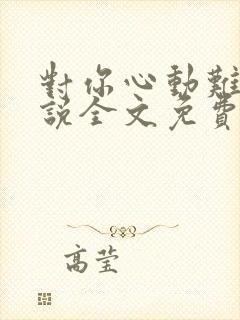 對你心動難
說全文免費
高莹